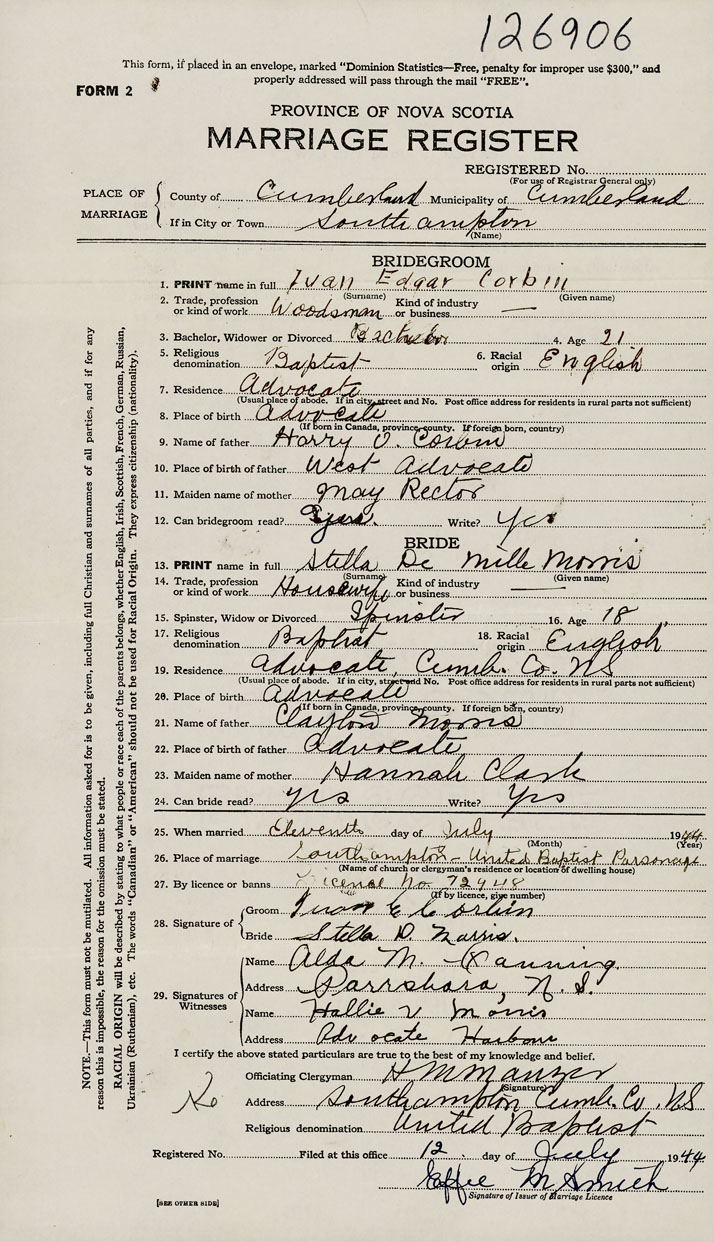 126906
This form, if placed in an envelope, marked "Dominion Statistics—Free, penalty for improper use $300," and
properly addressed will pass through the mail "FREE".
FORM 2
PROVINCE OF NOVA SCOTIA
MARRIAGE REGISTER
REGISTERED No.
(For use of Registrar General only)
PLACE OF MARRIAGE
County of Cumberland Municipality of Cumberland
If in City or Town Southampton
(Name)
BRIDEGROOM
1. PRINT name in full Ivan Edgar Corbin
(Surname) (Given name)
2. Trade, profession or kind of work Woodsman Kind of industry or business —
3. Bachelor, Widower or Divorced Bachelor 4. Age 21
5. Religious denomination Baptist 6. Racial origin English
7. Residence Advocate
(Usual place of abode. If in city, street and No. Post office address for residents in rural parts not sufficient)
8. Place of birth Advocate
(If born in Canada, province, county. If foreign born, country)
9. Name of father Harry V. Corbin
10. Place of birth of father West Advocate
11. Maiden name of mother May Rector
12. Can bridegroom read? Yes. Write? Yes
BRIDE
13. PRINT name in full Stella De Mille Morris
(Surname) (Given name)
14. Trade, profession or kind of work Housewife Kind of industry or business —
15. Spinster, Widow or Divorced Spinster 16. Age 18
17. Religious denomination Baptist 18. Racial origin English
19. Residence Advocate, Cumb. Co. NS
(Usual place of abode. If in city, street and No. Post office address for residents in rural parts not sufficient)
20. Place of birth Advocate
(If born in Canada, province, county. If foreign born, country)
21. Name of father Clayton Morris
22. Place of birth of father Advocate
23. Maiden name of mother Hannah Clark
24. Can bride read? Yes Write? Yes
25. When married Eleventh day of July 1944
(Month) (Year)
26. Place of marriage Southampton - United Baptist Parsonage
(Name of church or clergyman's residence or location of dwelling house)
27. By licence or banns License No. 72948
(If by licence, give number)
28. Signature of Groom Ivan E Corbin
Bride Stella D. Morris.
29. Signatures of Witnesses
Name Alda M. Canning
Address Parrsboro, N.S.
Name Hallie V Morris
Address Advocate Harbour
I certify the above stated particulars are true to the best of my knowledge and belief.
Officiating Clergyman H M Manzer
(Signature)
Address Southampton Cumb. Co. NS
Religious denomination United Baptist
Registered No. Filed at this office 12 day of July 1944
Effie M Smith
Signature of Issuer of Marriage Licence
[SEE OTHER SIDE]
NOTE.—This form must not be mutilated. All information asked for is to be given, including full Christian and surnames of all parties, and if for any
reason this is impossible, the reason for the omission must be stated.
RACIAL ORIGIN will be described by stating to what people or race each of the parents belongs, whether English, Irish, Scottish, French, German, Russian,
Ukrainian (Ruthenian), etc. The words "Canadian" or "American" should not be used for Racial Origin. They express citizenship (nationality).